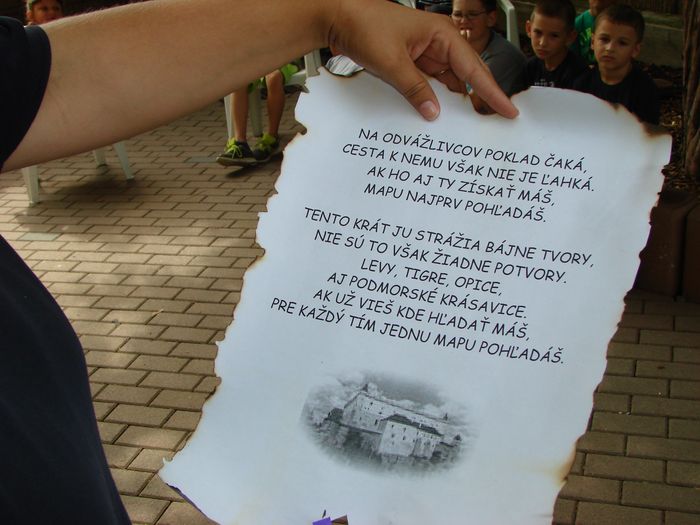 NA ODVÁŽLIVCOV POKLAD ČAKÁ,
CESTA K NEMU VŠAK NIE JE ĽAHKÁ.
AK HO AJ TY ZÍSKAŤ MÁŠ,
MAPU NAJPRV POHĽADÁŠ.
TENTO KRÁT JU STRÁŽIA BÁJNE TVORY,
NIE SÚ TO VŠAK ŽIADNE POTVORY.
LEVY, TIGRE, OPICE,
AJ PODMORSKÉ KRÁSAVICE.
AK UŽ VIEŠ KDE HĽADAŤ MÁŠ,
PRE KAŽDÝ TÍM JEDNU MAPU POHĽADÁŠ.